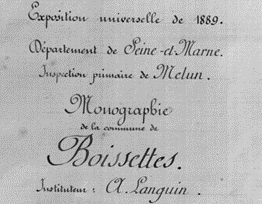 Exposition universelle de 1889.
Département de Seine-et-Marne.
Inspection primaire de Melun.
Monographie
de la commune de
Boissettes.
Instituteur : A. Languin.